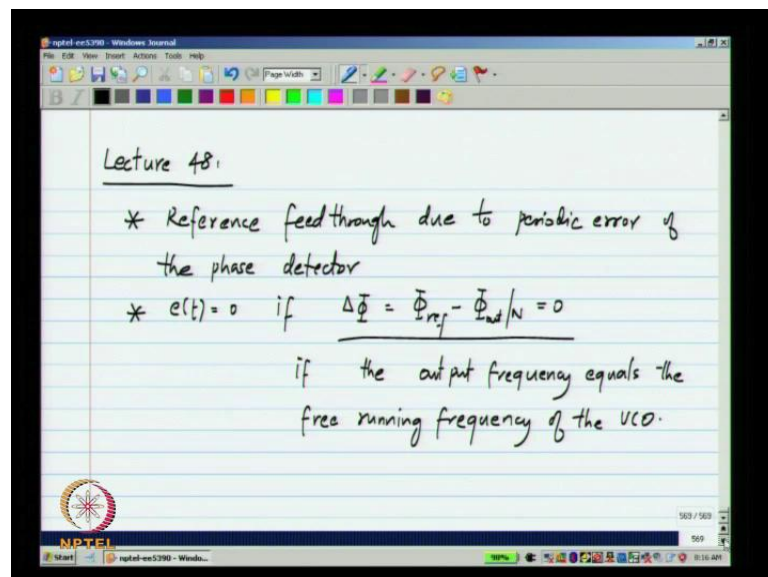 nptel-ee5390 - Windows Journal
File Edit View Insert Actions Tools Help
Page Width
B I
Lecture 48.
* Reference feedthrough due to periodic error of
the phase detector
* e(t) = 0 if ΔΦ = Φref - Φout/N = 0
if the output frequency equals the
free running frequency of the VCO.
NPTEL
569 / 569
569
Start nptel-ee5390 - Windo...
98% 8:16 AM